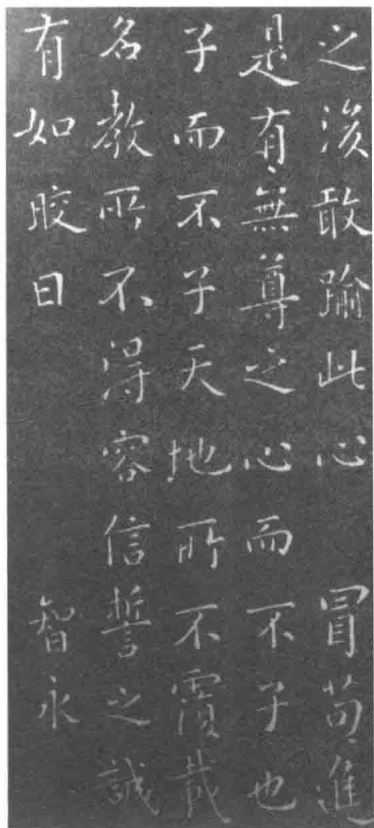 之後敢踰此心 冒苟進
是有無尊之心而不子也
子而不子天地所不覆載
名教所不得容信誓之誠
有如晈日 智永